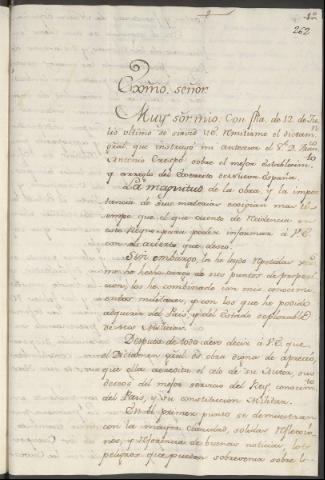 262
Exmo. señor.
Muy sor. mio. Con fha. de 12 de Ju-
lio ultimo se sirvió V.E. remitirme el dictam.n
gral. que instruyó mi antecesor el Sr. D. Fran.co
Antonio Crespo sobre el mejor establecim.to
y arreglo del Exercito de Nueva España.
La magnitud de la obra, y la impor-
tancia de sus materias exigian mas
tiempo que el que cuento de residencia en
este Reyno para poder informar à V.E.
con el acierto que deseo.
Sin embargo, la he leido
he hecho cargo de sus puntos de
los he combinado con mis conocimi-
entos militares, y con los que he podido
adquirir del Pais, y del Estado deplorable
de sus Milicias.
Despues de todo devo decir à V.E. que
el Dictamen gral. es obra digna de aprecio,
que ella acredita el celo de su Autor, sus
deseos del mejor servicio del Rey, conocim.to
del Pais, y su constitucion Militar.
En el primer punto se demuestran
con la mayor claridad, solidas reflexio-
nes, y referencia de buenas noticias los
peligros que puedan sobrevenir sobre